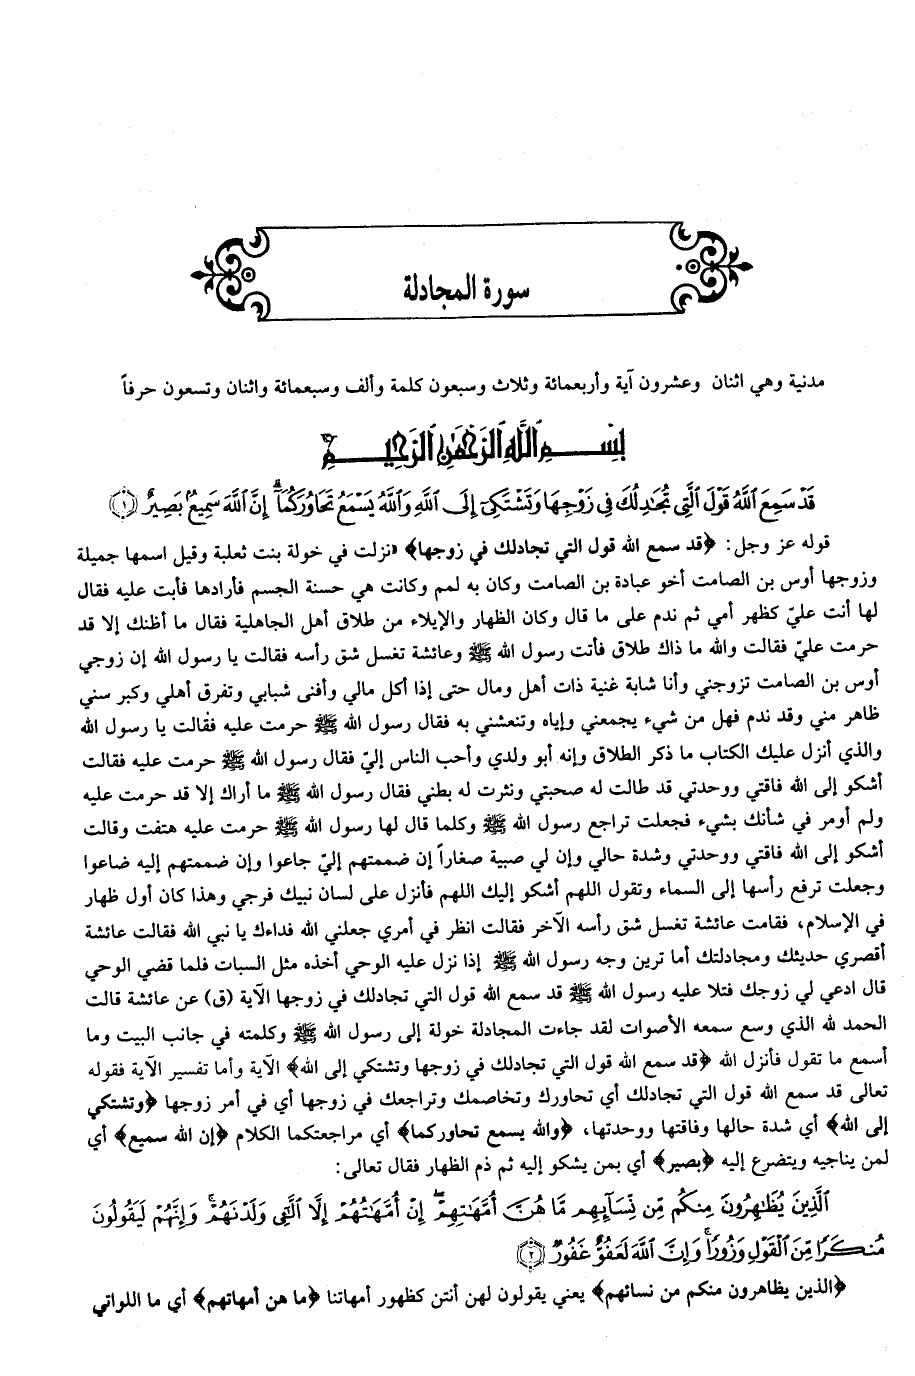 سورة المجادلة
مدنية وهي اثنان وعشرون آية وأربعمائة وثلاث وسبعون كلمة وألف وسبعمائة واثنان وتسعون حرفاً
بِسْمِ ٱللَّهِ ٱلرَّحْمَٰنِ ٱلرَّحِيمِ
قَدْ سَمِعَ ٱللَّهُ قَوْلَ ٱلَّتِى تُجَٰدِلُكَ فِى زَوْجِهَا وَتَشْتَكِىٓ إِلَى ٱللَّهِ وَٱللَّهُ يَسْمَعُ تَحَاوُرَكُمَآ ۚ إِنَّ ٱللَّهَ سَمِيعٌۢ بَصِيرٌ ﴿١﴾
قوله عز وجل: ﴿قد سمع الله قول التي تجادلك في زوجها﴾ نزلت في خولة بنت ثعلبة وقيل اسمها جميلة
وزوجها أوس بن الصامت أخو عبادة بن الصامت وكان به لمم وكانت هي حسنة الجسم فأرادها فأبت عليه فقال
لها أنت عليّ كظهر أمي ثم ندم على ما قال وكان الظهار والإيلاء من طلاق أهل الجاهلية فقال ما أظنك إلا قد
حرمت عليّ فقالت والله ما ذاك طلاق فأتت رسول الله ﷺ وعائشة تغسل شق رأسه فقالت يا رسول الله إن زوجي
أوس بن الصامت تزوجني وأنا شابة غنية ذات أهل ومال حتى إذا أكل مالي وأفنى شبابي وتفرق أهلي وكبر سني
ظاهر مني وقد ندم فهل من شيء يجمعني وإياه وتنعشني به فقال رسول الله ﷺ حرمت عليه فقالت يا رسول الله
والذي أنزل عليك الكتاب ما ذكر الطلاق وإنه أبو ولدي وأحب الناس إليّ فقال رسول الله ﷺ حرمت عليه فقالت
أشكو إلى الله فاقتي ووحدتي قد طالت له صحبتي ونثرت له بطني فقال رسول الله ﷺ ما أراك إلا قد حرمت عليه
ولم أومر في شأنك بشيء فجعلت تراجع رسول الله ﷺ وكلما قال لها رسول الله ﷺ حرمت عليه هتفت وقالت
أشكو إلى الله فاقتي ووحدتي وشدة حالي وإن لي صبية صغاراً إن ضممتهم إليّ جاعوا وإن ضممتهم إليه ضاعوا
وجعلت ترفع رأسها إلى السماء وتقول اللهم أشكو إليك اللهم فأنزل على لسان نبيك فرجي وهذا كان أول ظهار
في الإسلام، فقامت عائشة تغسل شق رأسه الآخر فقالت انظر في أمري جعلني الله فداءك يا نبي الله فقالت عائشة
أقصري حديثك ومجادلتك أما ترين وجه رسول الله ﷺ إذا نزل عليه الوحي أخذه مثل السبات فلما قضي الوحي
قال ادعي لي زوجك فتلا عليه رسول الله ﷺ قد سمع الله قول التي تجادلك في زوجها الآية (ق) عن عائشة قالت
الحمد لله الذي وسع سمعه الأصوات لقد جاءت المجادلة خولة إلى رسول الله ﷺ وكلمته في جانب البيت وما
أسمع ما تقول فأنزل الله ﴿قد سمع الله قول التي تجادلك في زوجها وتشتكي إلى الله﴾ الآية وأما تفسير الآية فقوله
تعالى قد سمع الله قول التي تجادلك أي تحاورك وتخاصمك وتراجعك في زوجها أي في أمر زوجها ﴿وتشتكي
إلى الله﴾ أي شدة حالها وفاقتها ووحدتها، ﴿والله يسمع تحاوركما﴾ أي مراجعتكما الكلام ﴿إن الله سميع﴾ أي
لمن يناجيه ويتضرع إليه ﴿بصير﴾ أي بمن يشكو إليه ثم ذم الظهار فقال تعالى:
ٱلَّذِينَ يُظَٰهِرُونَ مِنكُم مِّن نِّسَآئِهِم مَّا هُنَّ أُمَّهَٰتِهِمْ ۖ إِنْ أُمَّهَٰتُهُمْ إِلَّا ٱلَّٰٓـِٔى وَلَدْنَهُمْ ۚ وَإِنَّهُمْ لَيَقُولُونَ
مُنكَرًا مِّنَ ٱلْقَوْلِ وَزُورًا ۚ وَإِنَّ ٱللَّهَ لَعَفُوٌّ غَفُورٌ ﴿٢﴾
﴿الذين يظاهرون منكم من نسائهم﴾ يعني يقولون لهن أنتن كظهور أمهاتنا ﴿ما هن أمهاتهم﴾ أي ما اللواتي